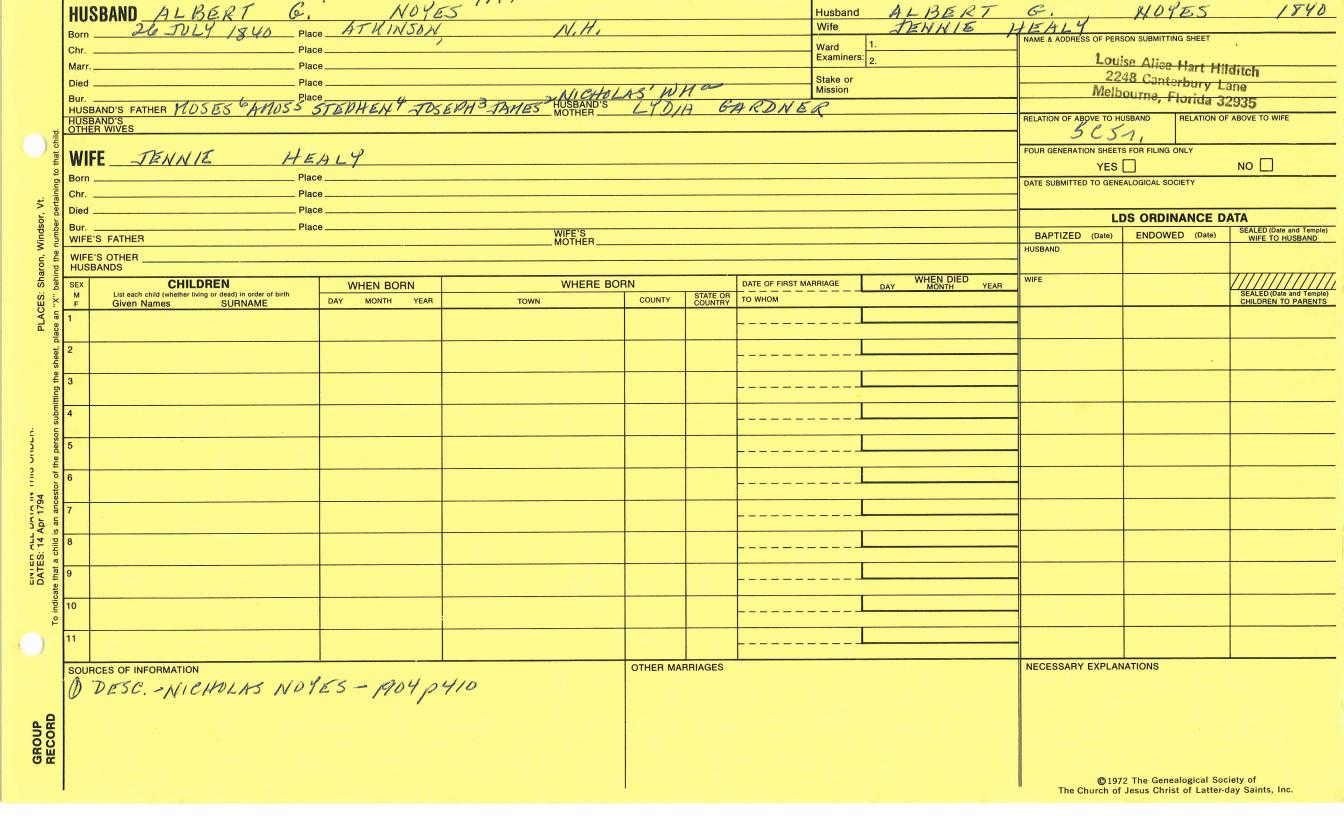 HUSBAND ALBERT G. NOYES
Born 26 JULY 1840 Place ATKINSON, N.H.
Chr. Place
Marr. Place
Died Place
Bur. Place
HUSBAND'S FATHER MOSES⁶ AMOS⁵ STEPHEN⁴ JOSEPH³ JAMES² NICHOLAS¹ HUSBAND'S MOTHER LYDIA GARDNER
HUSBAND'S OTHER WIVES
WIFE JENNIE HEALY
Born Place
Chr. Place
Died Place
Bur. Place
WIFE'S FATHER WIFE'S MOTHER
WIFE'S OTHER HUSBANDS
Husband ALBERT G. NOYES 1840
Wife JENNIE HEALY
Ward Examiners: 1.
2.
Stake or Mission
NAME & ADDRESS OF PERSON SUBMITTING SHEET
Louise Alice Hart Hilditch
2248 Canterbury Lane
Melbourne, Florida 32935
RELATION OF ABOVE TO HUSBAND RELATION OF ABOVE TO WIFE
FOUR GENERATION SHEETS FOR FILING ONLY
YES NO
DATE SUBMITTED TO GENEALOGICAL SOCIETY
LDS ORDINANCE DATA
BAPTIZED (Date) ENDOWED (Date) SEALED (Date and Temple) WIFE TO HUSBAND
HUSBAND
WIFE
SEALED (Date and Temple) CHILDREN TO PARENTS
SEX M F
CHILDREN
List each child (whether living or dead) in order of birth
Given Names SURNAME
WHEN BORN
DAY MONTH YEAR
WHERE BORN
TOWN COUNTY STATE OR COUNTRY
DATE OF FIRST MARRIAGE
TO WHOM
WHEN DIED
DAY MONTH YEAR
1
2
3
4
5
6
7
8
9
10
11
SOURCES OF INFORMATION
① DESC. - NICHOLAS NOYES - 1904 p410
OTHER MARRIAGES
NECESSARY EXPLANATIONS
©1972 The Genealogical Society of
The Church of Jesus Christ of Latter-day Saints, Inc.
PLACES: Sharon, Windsor, Vt.
To indicate that a child is an ancestor of the person submitting the sheet, place an "X" behind the number pertaining to that child.
ENTER ALL DATA IN THIS ORDER:
DATES: 14 Apr 1794
GROUP
RECORD